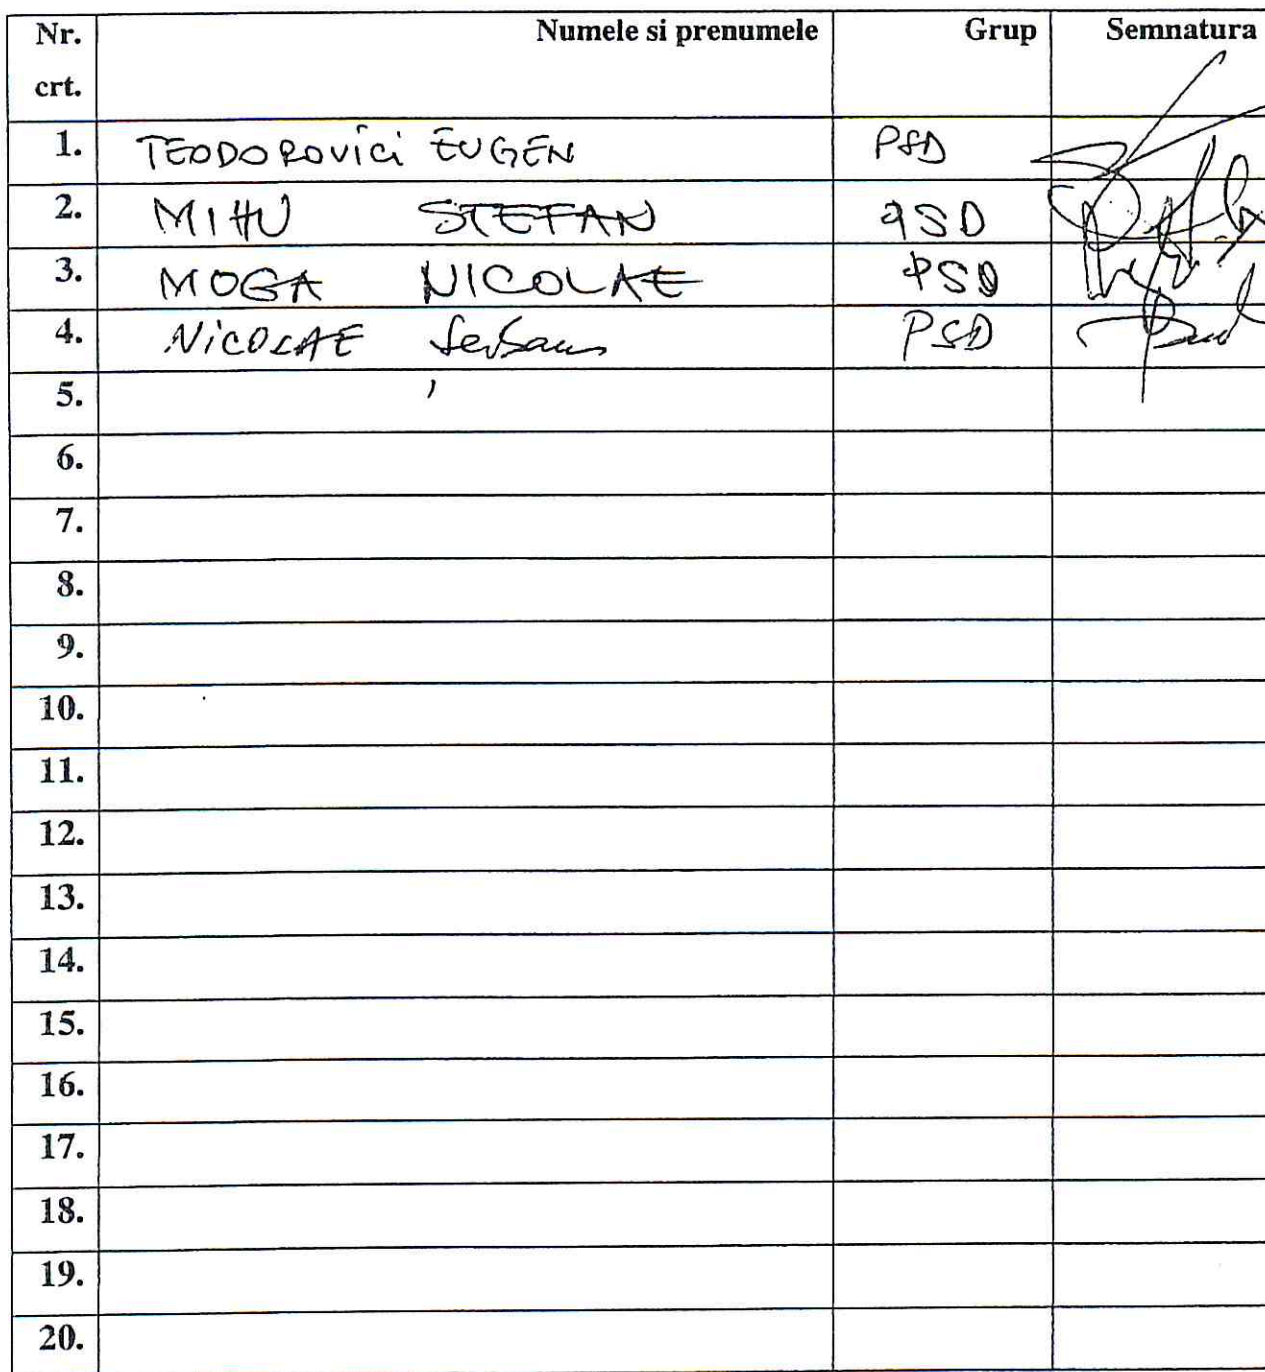 Nr. crt. Numele si prenumele Grup Semnatura
1. TEODOROVICI EUGEN PSD
2. MIHU STEFAN PSD
3. MOGA NICOLAE PSD
4. NICOLAE Șerban PSD
5.
6.
7.
8.
9.
10.
11.
12.
13.
14.
15.
16.
17.
18.
19.
20.